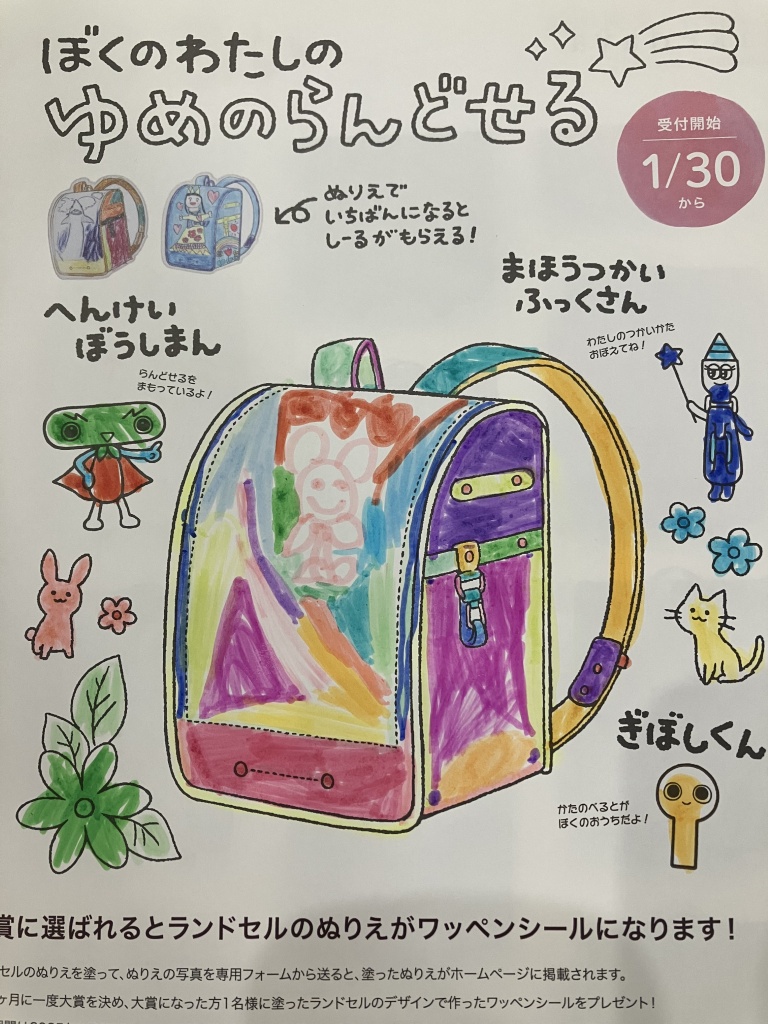 ぼくのわたしの
ゆめのらんどせる
受付開始
1/30
から
ぬりえで
いちばんになると
しーるがもらえる!
まほうつかい
ふっくさん
わたしのつかいかた
おぼえてね!
へんけい
ぼうしまん
らんどせるを
まもっているよ!
ぎぼしくん
かたのべるとが
ぼくのおうちだよ!
賞に選ばれるとランドセルのぬりえがワッペンシールになります!
セルのぬりえを塗って、ぬりえの写真を専用フォームから送ると、塗ったぬりえがホームページに掲載されます。
ヶ月に一度大賞を決め、大賞になった方1名様に塗ったランドセルのデザインで作ったワッペンシールをプレゼント!